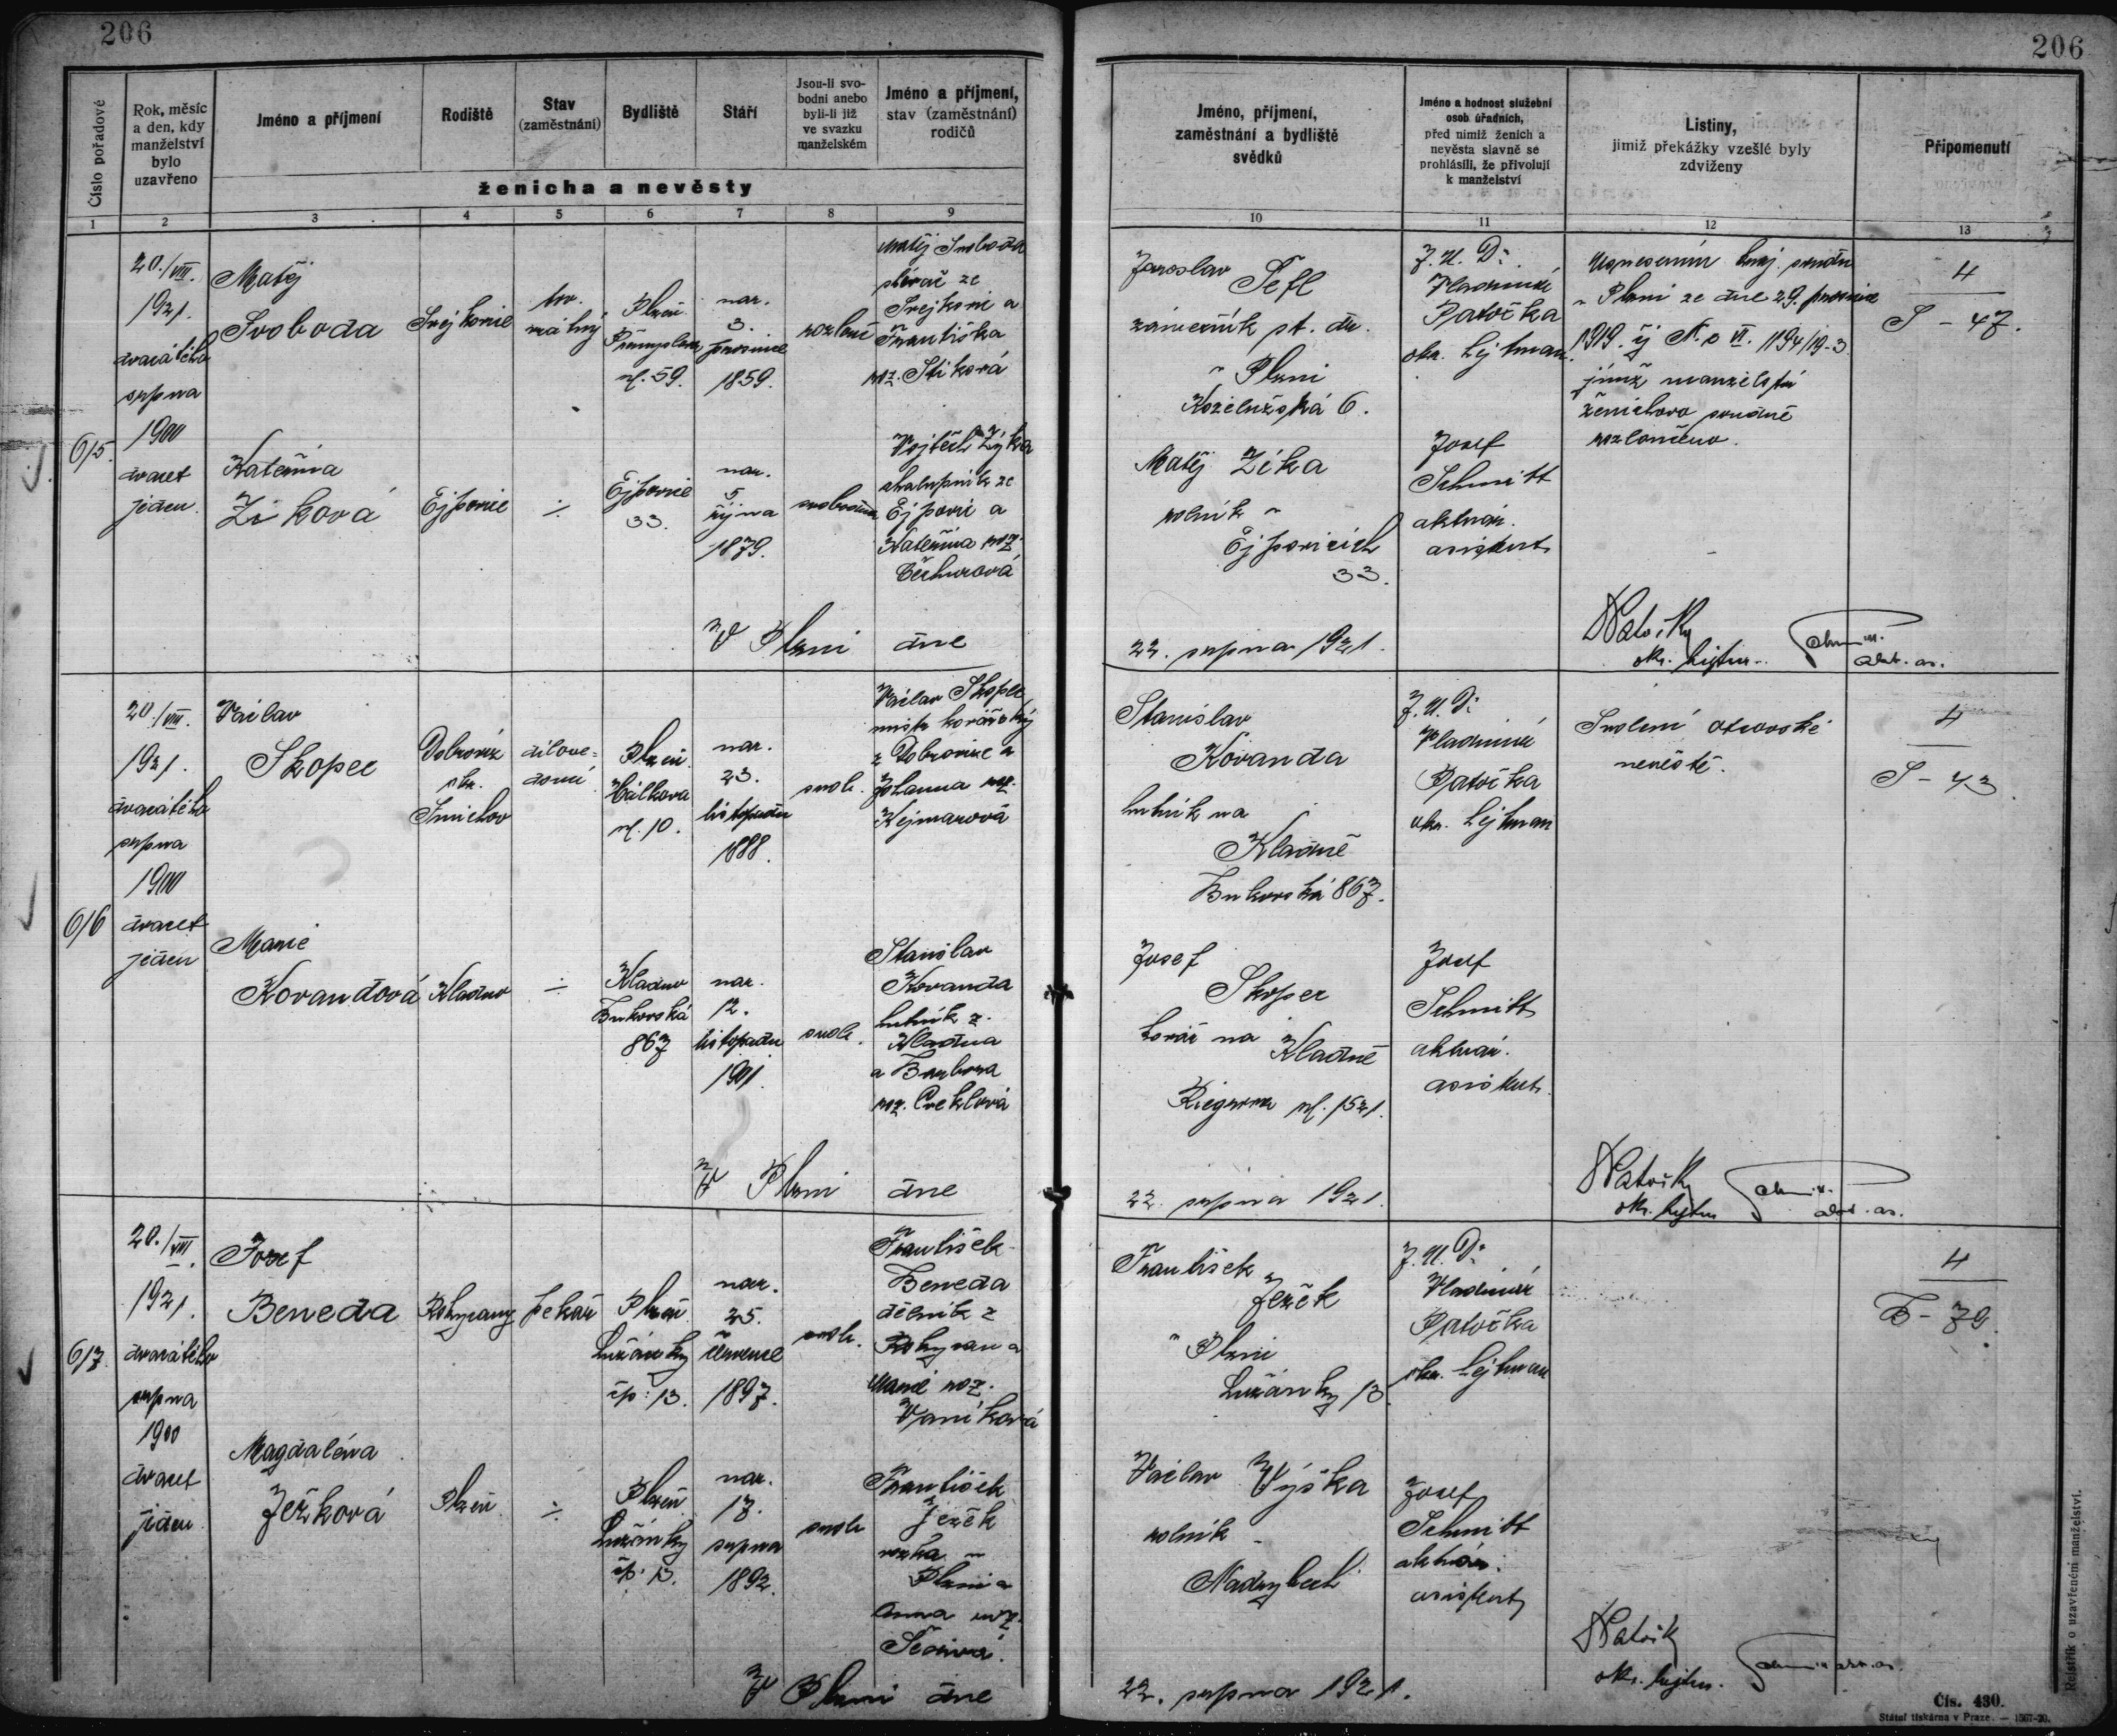 206
206
Číslo pořadové
Rok, měsíc
a den, kdy
manželství
bylo
uzavřeno
Jméno a příjmení
Rodiště
Stav
(zaměstnání)
Bydliště
Stáří
Jsou-li svo-
bodni anebo
byli-li již
ve svazku
manželském
Jméno a příjmení,
stav (zaměstnání)
rodičů
ženicha a nevěsty
Jméno, příjmení,
zaměstnání a bydliště
svědků
Jméno a hodnost služební
osob úřadních,
před nimiž ženich a
nevěsta slavně se
prohlásili, že přivolují
k manželství
Listiny,
jimiž překážky vzešlé byly
zdviženy
Připomenutí
1 2 3 4 5 6 7 8 9 10 11 12 13
615.
20./VIII.
1921.
dvacátého
srpna
1900
dvacet
jeden
Matěj
Svoboda
Plzeň
ul. 59.
nar.
3.
prosince
1859.
Matěj Svoboda
ze
a
Františka
roz.
Kateřina
Ziková
Ejpovice
÷
Ejpovice
33.
nar.
5.
října
1879.
svobodna
Vojtěch
chalupník ze
Ejpovic a
Kateřina roz.
V Plzni dne
Jaroslav
Šefl
zámečník st. dr.
v Plzni
Koželužská 6.
Matěj Zíka
rolník v
Ejpovicích
33.
J. U. Dr.
Vladimír
Patočka
okr. hejtman.
Josef
Schmitt
aktuár.
asistent
Usnesením kraj. soudu
v Plzni ze dne 29. prosince
1919. čj N. c VI. 1194/19-3
jímž manželství
ženichovo soudně
rozloučeno.
4
S - 47.
22. srpna 1921.
okr. hejtm.
akt. as.
616
20./VIII.
1921.
dvacátého
srpna
1900
dvacet
jeden
Václav
Skopec
Dobrovíz
okr.
Smíchov
dílove-
doucí
Plzeň
Hálkova
ul. 10.
nar.
23.
listopadu
1888.
svob.
Václav Skopec
mistr kovářský
z Dobrovíze a
Johanna roz.
Kejmarová
Marie
Kovandová
Kladno
÷
Kladno
Bukovská
867
nar.
12.
listopadu
1901.
svob.
Stanislav
Kovanda
hutník z
Kladna
a Barbora
roz. Cveklová
V Plzni dne
Stanislav
Kovanda
hutník na
Kladně
Bukovská 867.
Josef
Skopec
kovář na
Kladně
ul. 1521.
J. U. Dr.
Vladimír
Patočka
okr. hejtman
Josef
Schmitt
aktuár.
asistent.
Svolení otcovské
nevěstě.
4
S - 43
22. srpna 1921.
okr. hejtm
akt. as.
617.
20./VIII.
1921.
dvacátého
srpna
1900
dvacet
jeden
Josef
Beneda
Rokycany
pekař
Plzeň
Lužánky
čp: 13.
nar.
25.
července
1897.
svob.
František
Beneda
dělník z
Rokycan a
Marie roz.
Vaníková
Magdaléna
Ježková
Plzeň
÷
Plzeň
Lužánky
čp. 13.
nar.
17.
srpna
1892.
svob
František
Ježek
v
Plzni a
Anna roz.
V Plzni dne
František
Ježek
v Plzni
Lužánky 13.
Václav Výška
rolník
J. U. Dr.
Vladimír
Patočka
okr. hejtman
Josef
Schmitt
aktuár.
asistent
4
B - 79.
22. srpna 1921.
okr. hejtm.
Rejstřík o uzavřeném manželství.
Čís. 430.
Státní tiskárna v Praze. — 1567-20.